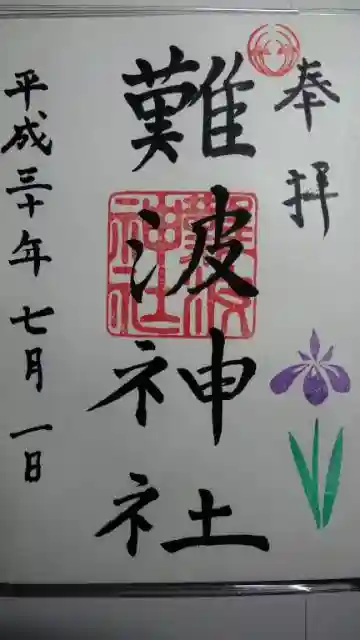 奉拝
難波神社
難波神社
平成三十年七月一日